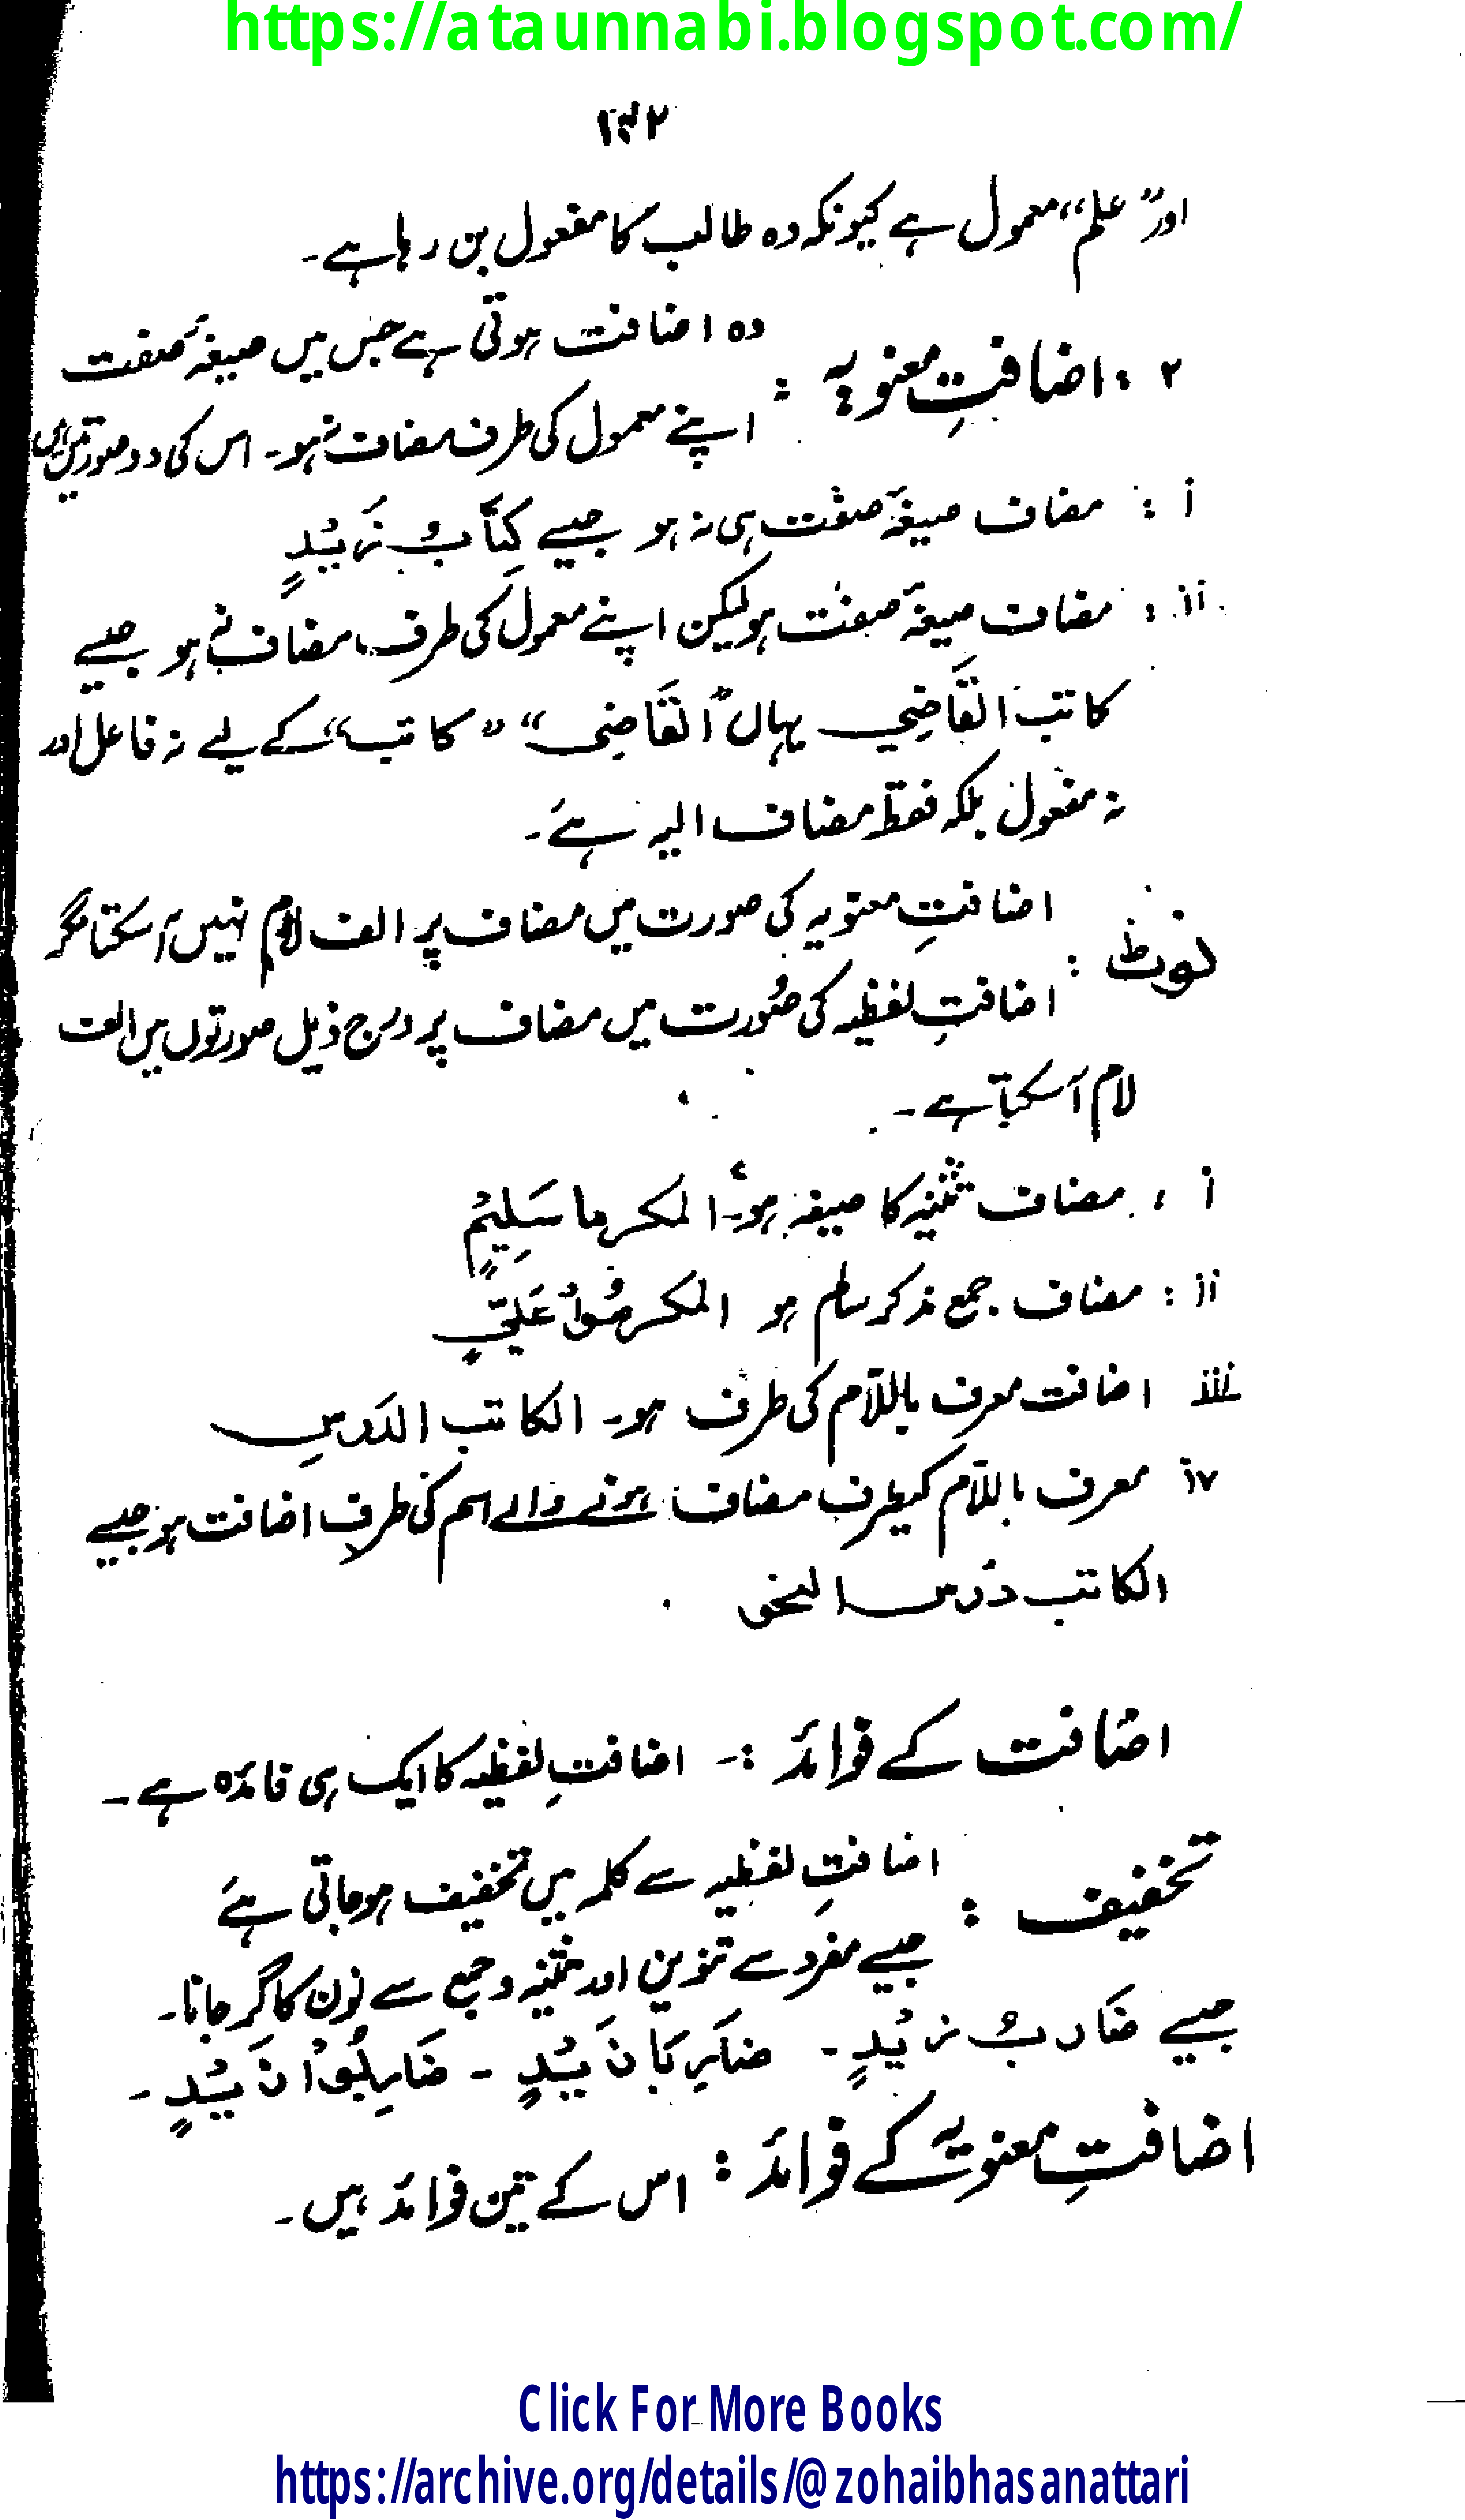 https://ataunnabi.blogspot.com/
۱۳۲
اور "علم" معمول ہے کیونکہ وہ طالب کا مفعول بن رہا ہے۔
۲ : اضافتِ معنویہ : وہ اضافت ہوتی ہے جس میں صیغۂ صفت
اپنے معمول کی طرف مضاف نہ ہو۔ اس کی دو صورتیں ہیں
i : مضاف صیغۂ صفت ہی نہ ہو جیسے کِتَابُ زَیْدٍ
ii : مضاف صیغۂ صفت ہو لیکن اپنے معمول کی طرف مضاف نہ ہو جیسے
کاتب القَاضِی یہاں "القَاضِی" "کاتب" کے لیے نہ فاعل اور
نہ مفعول بلکہ فقط مضاف الیہ ہے۔
نوٹ : اضافتِ معنویہ کی صورت میں مضاف پر الف لام نہیں آ سکتا مگر
اضافتِ لفظیہ کی صُورت میں مضاف پر درج ذیل صورتوں میں الف
لام آ سکتا ہے۔
i : مضاف تثنیہ کا صیغہ ہو۔ المکرما سَلِیْمٍ
ii : مضاف جمع مذکر سالم ہو المکرمُوْ عَلِیٍّ
iii اضافت معرف باللّام کی طرف ہو۔ الکاتب الدَرسِ
iv معرف باللّام کیطرف مضاف ہونے والے اسم کی طرف اضافت ہو جیسے
الکاتب درس النحو
اضافت کے فوائد :۔ اضافتِ لفظیہ کا ایک ہی فائدہ ہے۔
تخفیف : اضافتِ لفظیہ سے کلمہ میں تخفیف ہو جاتی ہے
جیسے مفرد سے تنوین اور تثنیہ و جمع سے نون کا گر جانا۔
جیسے ضَارِبُ زَیْدٍ۔ ضَارِبَا زَیْدٍ ۔ ضَارِبُوْا زَیْدٍ۔
اضافتِ معنویہ کے فوائد : اس کے تین فوائد ہیں۔
Click For More Books
https://archive.org/details/@zohaibhasanattari